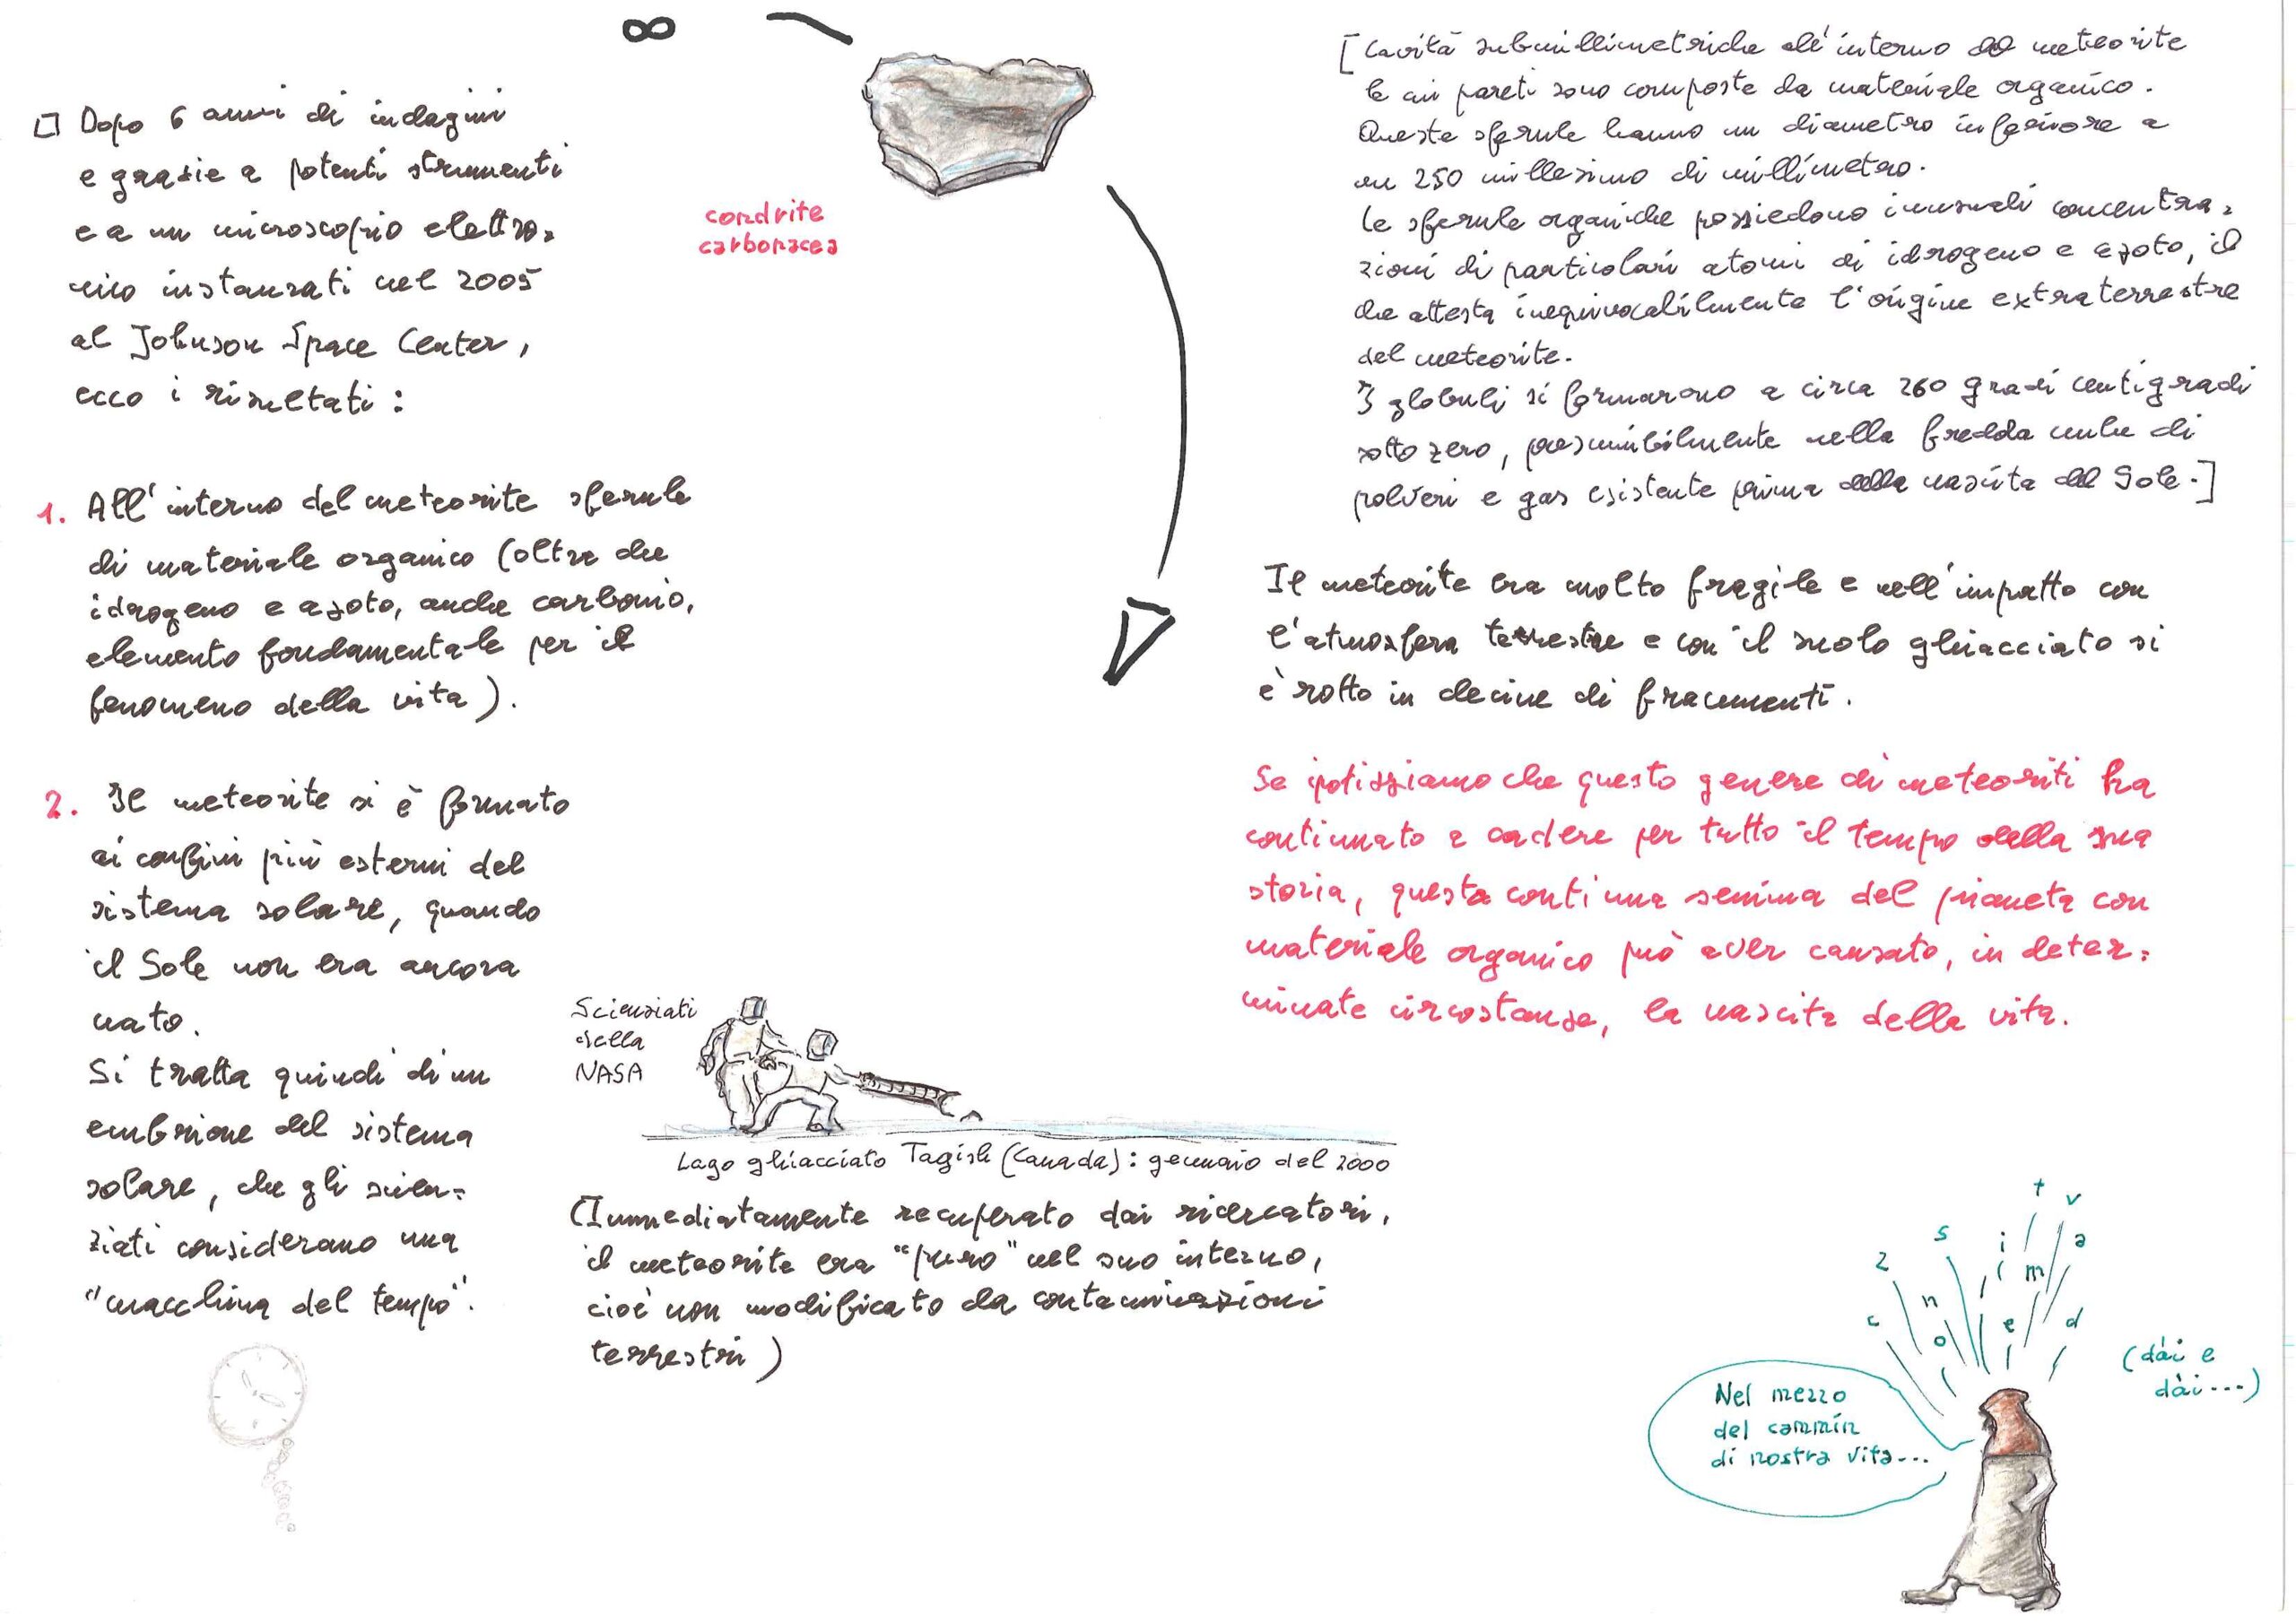 ∞
□ Dopo 6 anni di indagini
e grazie a potenti strumenti
e a un microscopio elettro=
nico instaurati nel 2005
al Johnson Space Center,
ecco i risultati:
1. All'interno del meteorite sferule
di materiale organico (oltre che
idrogeno e azoto, anche carbonio,
elemento fondamentale per il
fenomeno della vita).
2. Il meteorite si è formato
ai confini più esterni del
sistema solare, quando
il Sole non era ancora
nato.
Si tratta quindi di un
embrione del sistema
solare, che gli scien=
ziati considerano una
"macchina del tempo".
condrite
carbonacea
Scienziati
della
NASA
Lago ghiacciato Tagish (Canada): gennaio del 2000
(Immediatamente recuperato dai ricercatori,
il meteorite era "puro" nel suo interno,
cioè non modificato da contaminazioni
terrestri)
[Cavità submillimetriche all'interno del meteorite
le cui pareti sono composte da materiale organico.
Queste sferule hanno un diametro inferiore a
un 250 millesimo di millimetro.
Le sferule organiche possiedono inusuali concentra=
zioni di particolari atomi di idrogeno e azoto, il
che attesta inequivocabilmente l'origine extraterrestre
del meteorite.
I globuli si formarono a circa 260 gradi centigradi
sotto zero, presumibilmente nella fredda nube di
polveri e gas esistente prima della nascita del Sole.]
Il meteorite era molto fragile e nell'impatto con
l'atmosfera terrestre e con il suolo ghiacciato si
è rotto in decine di frammenti.
Se ipotizziamo che questo genere di meteoriti ha
continuato a cadere per tutto il tempo della sua
storia, questa continua semina del pianeta con
materiale organico può aver causato, in deter=
minate circostanze, la nascita della vita.
t v
s i a
z m
n
c o e d
(dài e
dài...)
Nel mezzo
del cammin
di nostra vita...